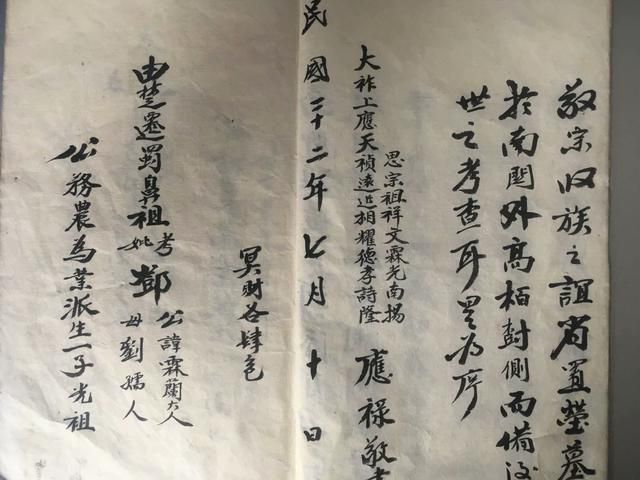 敬宗收族之誼尚置瑩墓
於南関外高栢對側而備後
世之考查耳是为序
思宗祖祥文霖光南揚
大祚上應天禎遠近相耀德孝詩隆
應祿敬
民國二十二年七月十日
冥財各肆包
由楚遷蜀鼻祖考妣鄧公諱霖蘭大人母劉孺人
公務農為業派生一子光祖